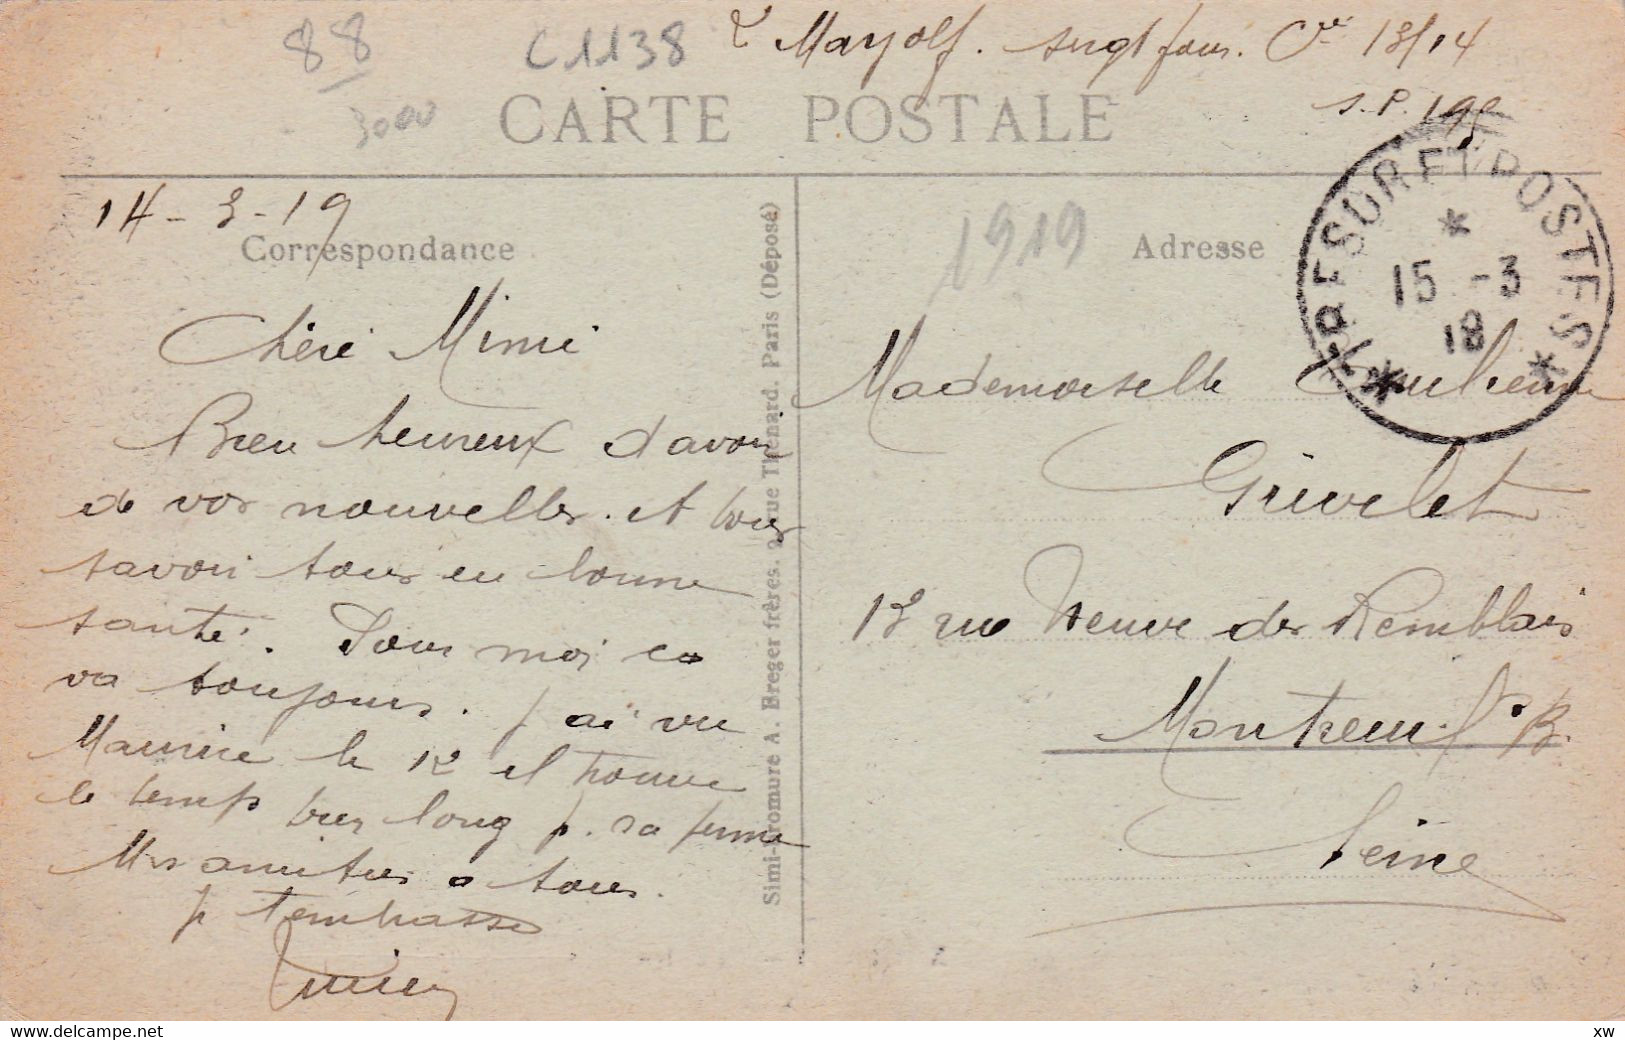 88
C1138
3000
L Mayolf. sergt four. Cie 13/14
S.P. 198
CARTE POSTALE
14-3-19
Correspondance
Chère Mimi
Bien heureux d avoir
de vos nouvelles. et vous
savoir tous en bonne
santé. Pour moi ca
va toujours. j ai vu
Maurice le 12 il trouve
le temps tres long p. sa femme
Mes amities a tous.
je t embrasse
Lucien
Simi-Bromure A. Breger frères. 9, rue Thénard. Paris (Déposé)
1919
Adresse
TRESOR ET POSTES
15 -3
18
Mademoiselle
Grivelet
12 rue Neuve des Remblais
Montreuil s. B.
Seine
delcampe.net
xw